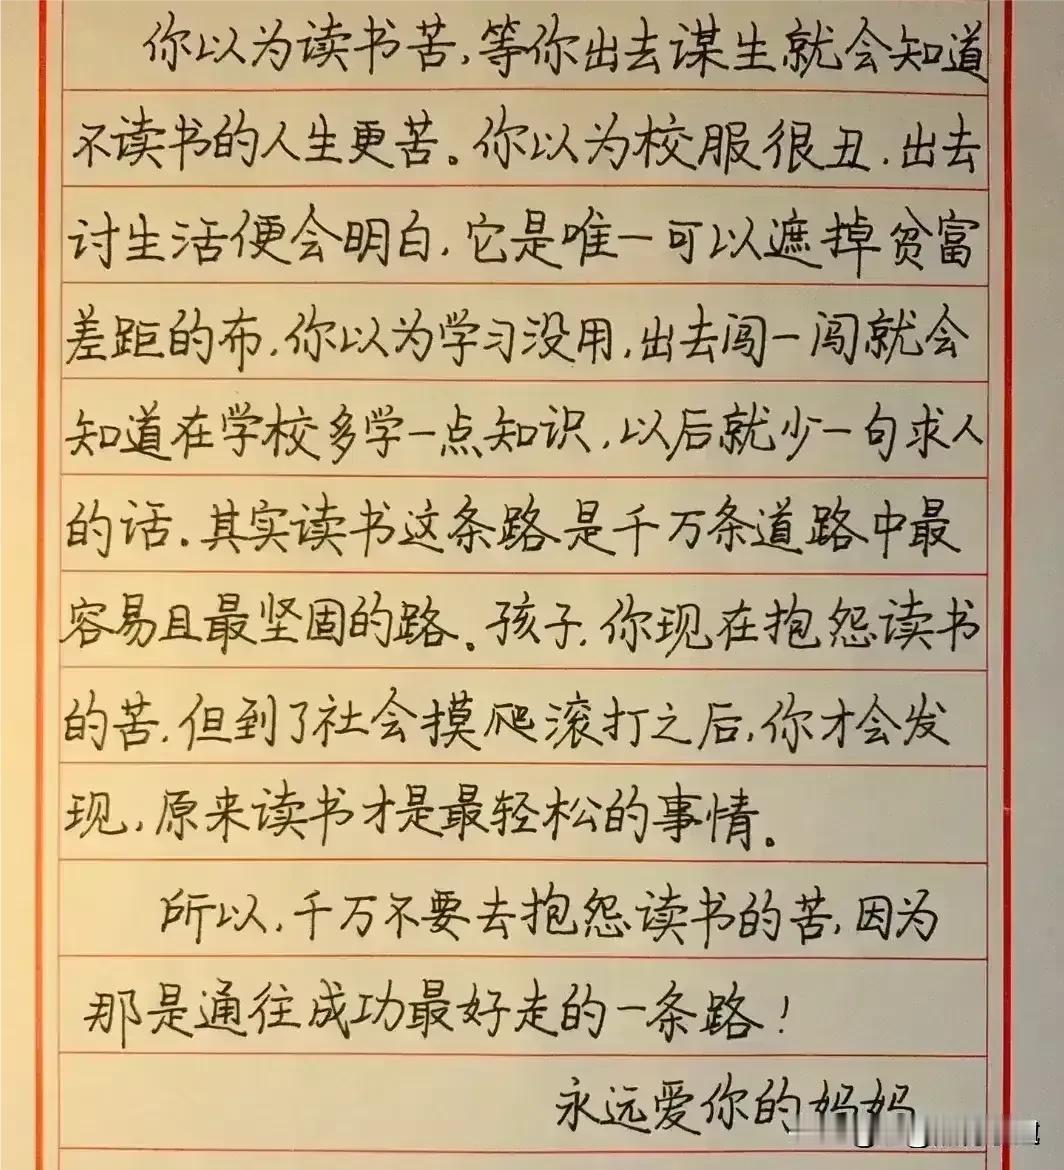 你以为读书苦,等你出去谋生就会知道
不读书的人生更苦。你以为校服很丑,出去
讨生活便会明白,它是唯一可以遮掉贫富
差距的布,你以为学习没用,出去闯一闯就会
知道在学校多学一点知识,以后就少一句求人
的话.其实读书这条路是千万条道路中最
容易且最坚固的路。孩子,你现在抱怨读书
的苦,但到了社会摸爬滚打之后,你才会发
现,原来读书才是最轻松的事情。
所以,千万不要去抱怨读书的苦,因为
那是通往成功最好走的一条路!
永远爱你的妈妈